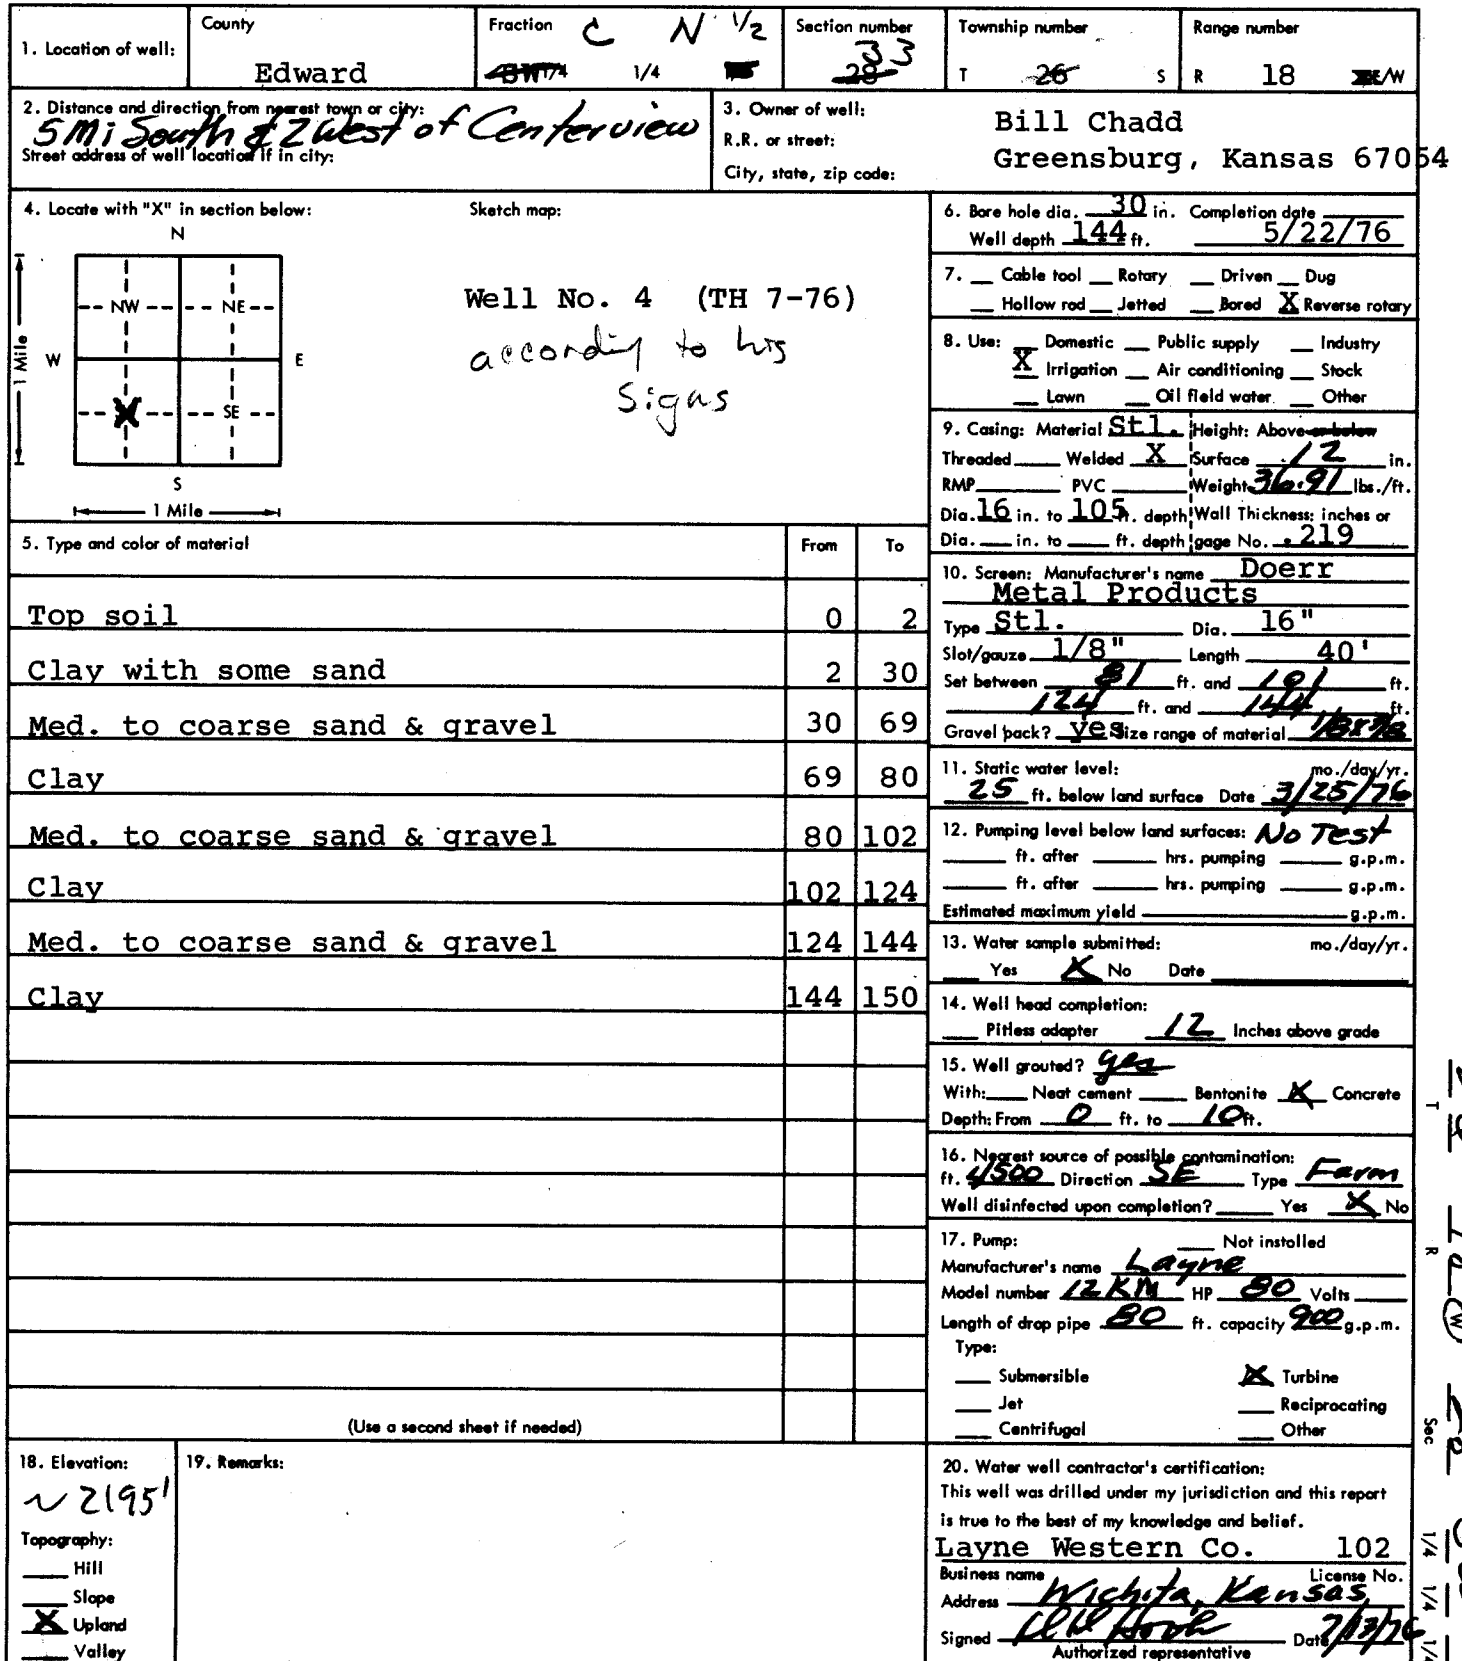 1. Location of well:
County
Edward
Fraction C N 1/2
1/4 1/4
Section number
33
28
Township number
T 26 S
Range number
R 18 E/W
2. Distance and direction from nearest town or city:
5 Mi South & 2 West of Centerview
Street address of well location if in city:
3. Owner of well:
R.R. or street:
City, state, zip code:
Bill Chadd
Greensburg, Kansas 67054
4. Locate with "X" in section below:
N
NW NE
W E
SE
S
1 Mile
1 Mile
Sketch map:
Well No. 4 (TH 7-76)
according to his
signs
5. Type and color of material From To
Top soil 0 2
Clay with some sand 2 30
Med. to coarse sand & gravel 30 69
Clay 69 80
Med. to coarse sand & gravel 80 102
Clay 102 124
Med. to coarse sand & gravel 124 144
Clay 144 150
(Use a second sheet if needed)
6. Bore hole dia. 30 in. Completion date
Well depth 144 ft. 5/22/76
7. Cable tool Rotary Driven Dug
Hollow rod Jetted Bored X Reverse rotary
8. Use: Domestic Public supply Industry
X Irrigation Air conditioning Stock
Lawn Oil field water Other
9. Casing: Material Stl. Height: Above or below
Threaded Welded X Surface 12 in.
RMP PVC Weight 36.91 lbs./ft.
Dia. 16 in. to 105 ft. depth Wall Thickness: inches or
Dia. in. to ft. depth gage No. .219
10. Screen: Manufacturer's name Doerr
Metal Products
Type Stl. Dia. 16"
Slot/gauze 1/8" Length 40'
Set between 81 ft. and 101 ft.
124 ft. and 144 ft.
Gravel pack? yes Size range of material
11. Static water level: mo./day/yr.
25 ft. below land surface Date 3/25/76
12. Pumping level below land surfaces: No Test
ft. after hrs. pumping g.p.m.
ft. after hrs. pumping g.p.m.
Estimated maximum yield g.p.m.
13. Water sample submitted: mo./day/yr.
Yes X No Date
14. Well head completion:
Pitless adapter 12 Inches above grade
15. Well grouted? yes
With: Neat cement Bentonite X Concrete
Depth: From 0 ft. to 10 ft.
16. Nearest source of possible contamination:
ft. Direction SE Type Farm
Well disinfected upon completion? Yes X No
17. Pump: Not installed
Manufacturer's name Layne
Model number 12 KM HP 80 Volts
Length of drop pipe 80 ft. capacity 900 g.p.m.
Type:
Submersible X Turbine
Jet Reciprocating
Centrifugal Other
18. Elevation:
~2195'
Topography:
Hill
Slope
X Upland
Valley
19. Remarks:
20. Water well contractor's certification:
This well was drilled under my jurisdiction and this report
is true to the best of my knowledge and belief.
Layne Western Co. 102
Business name License No.
Address Wichita, Kansas
Signed Date 7/13/76
Authorized representative
T
R
Sec
1/4 1/4 1/4